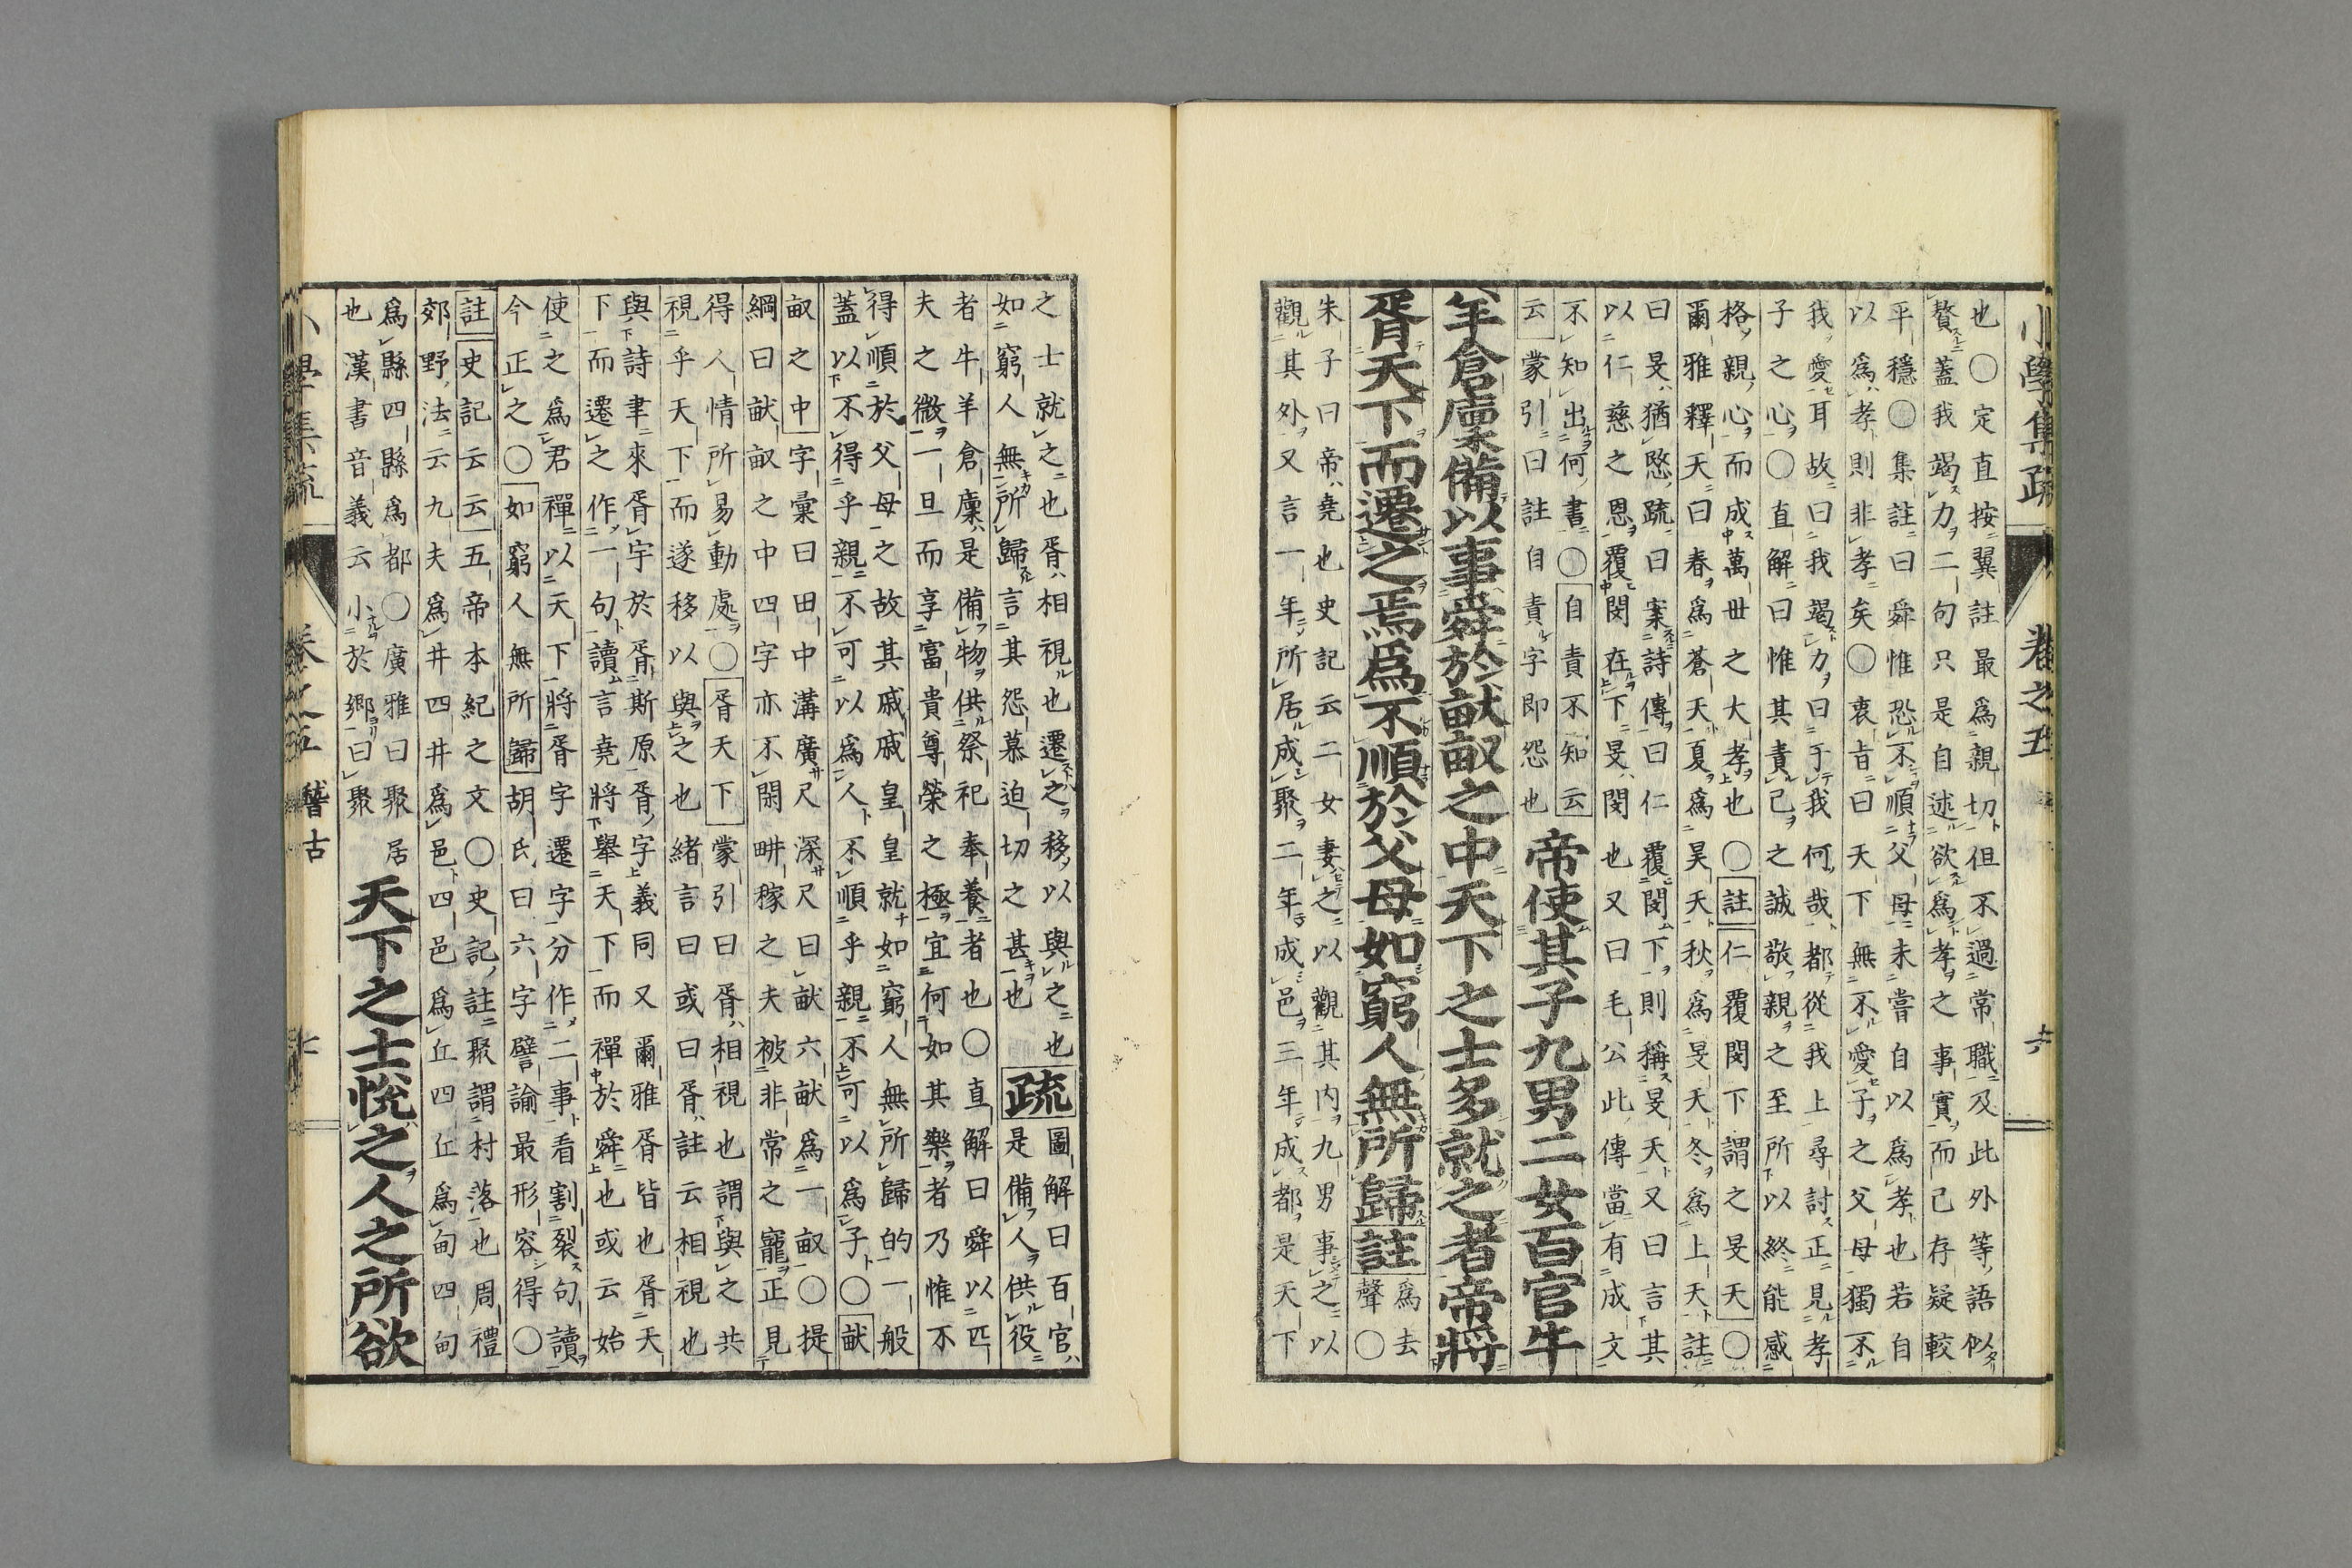 也○定直按翼註最爲親切但不過常職及此外等語似
贅蓋我竭力二句只是自述欲爲孝之事實而己存疑較
平穩○集註曰舜惟恐不順父母未嘗自以爲孝也若自
以爲孝則非孝矣○衷旨曰天下無不愛子之父母獨不
我愛耳故曰我竭力曰于我何哉都從我上尋討正見孝
子之心○直解曰惟其責己之誠敬親之至所以終能感
格親心而成萬世之大孝也○註仁覆閔下謂之旻天○
爾雅釋天曰春爲蒼天夏爲昊天秋爲旻天冬爲上天註
曰旻猶愍疏曰案詩傳曰仁覆閔下則稱旻天又曰言其
以仁慈之恩覆閔在下旻閔也又曰毛公此傳當有成文
不知出何書○自責不知云
云蒙引曰註自責字即怨也
帝使其子九男二女百官牛
羊倉廩備以事舜於畎畝之中天下之士多就之者帝將
胥天下而遷之焉爲不順於父母如窮人無所歸註
爲去
聲○
朱子曰帝堯也史記云二女妻之以觀其內九男事之以
觀其外又言一年所居成聚二年成邑三年成都是天下
小學集疏 卷之五 六
之士就之也胥相視也遷之移以與之也
如窮人無所歸言其怨慕迫切之甚也
疏
圖解曰百官
是備人供役
者牛羊倉廩是備物供祭祀奉養者也○直解曰舜以匹
夫之微一旦而享富貴尊榮之極宜何如其樂者乃惟不
得順於父母之故其戚戚皇皇就如窮人無所歸的一般
蓋以不得乎親不可以爲人不順乎親不可以爲子○畎
畝之中字彙曰田中溝廣尺深尺曰畎六畎爲一畝○提
綱曰畎畝之中四字亦不閑耕稼之夫被非常之寵正見
得人情所易動處○胥天下蒙引曰胥相視也謂與之共
視乎天下而遂移以與之也緒言曰或曰胥註云相視也
與詩聿來胥宇於胥斯原胥字義同又爾雅胥皆也胥天
下而遷之作一句讀言堯將舉天下而禪於舜也或云始
使之爲君禪以天下將胥字遷字分作二事看割裂句讀
今正之○如窮人無所歸胡氏曰六字譬諭最形容得○
註史記云云五帝本紀之文○史記註聚謂村落也周禮
郊野法云九夫爲井四井爲邑四邑爲丘四丘爲甸四甸
爲縣四縣爲都○廣雅曰聚居
也漢書音義云小於鄉曰聚
天下之士悅之人之所欲
小學集疏 卷之五 稽古 七